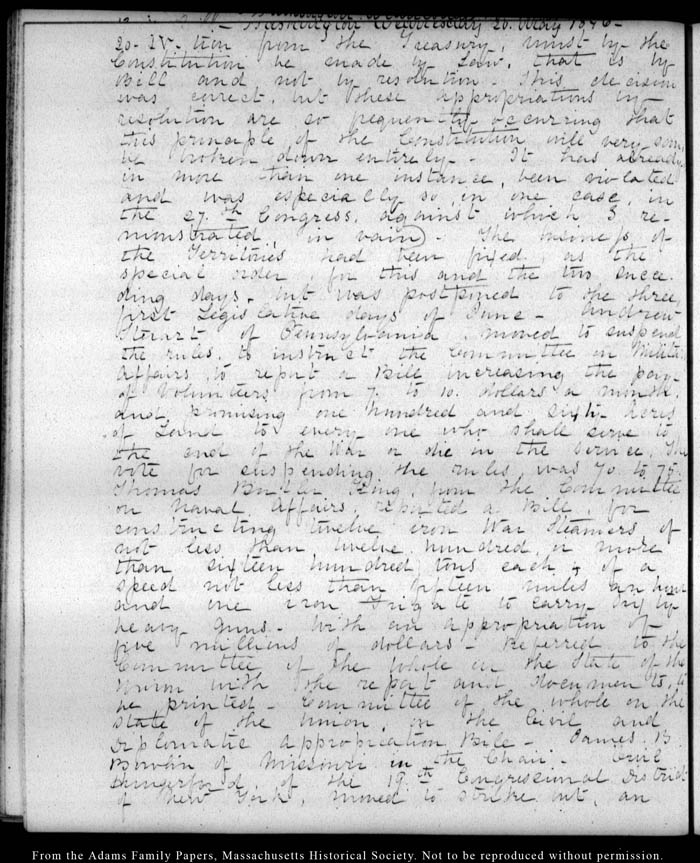 Washington Wednesday 20. May 1846-
20. IV. tion from the Treasury, must by the
Constitution be made by Law, that is by
Bill and not by resolution. This decision
was correct, but these appropriations by
resolution are so frequently occurring that
this principle of the Constitution will very soon
be broken down entirely. It has already
in more than one instance, been violated
and was especially so, in one case, in
the 27.th Congress, against which I re-
monstrated in vain). The business of
the Territories had been fixed, as the
special order, for this and the two succee
ding days, but was postponed to the three
first Legislative days of June- Andrew
Stewart of Pennsylvania, moved to suspend
the rules, to instruct the Committee on Milita
Affairs, to report a Bill increasing the pay
of Volunteers from 7. to 10. dollars a month,
and promising one hundred and sixty Acres
of Land to every one who shall serve to
the end of the War or die in the service. The
vote for suspending the rules, was 70 to 75.
Thomas Butler King, from the Committee
on Naval Affairs, reported a Bill, for
constructing twelve iron War Steamers of
not less than twelve hundred, or more
than sixteen hundred tons each, of a
speed not less than fifteen miles an hour
and one iron Frigate to carry fifty
heavy guns- With an appropriation of
five millions of dollars- Referred to the
Committee of the whole on the State of the
Union with the report and documents, to
be printed- Committee of the whole on the
state of the Union, on the Civil and
Diplomatic appropriation Bill- James. B.
Bowlin of Missouri in the Chair. Orville
Hungerford, of the 19th Congressional District
of New York, moved to strike out, an
From the Adams Family Papers, Massachusetts Historical Society. Not to be reproduced without permission.